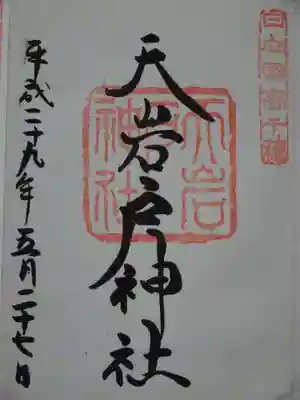 天岩戸神社
天岩戸神社
平成二十九年五月二十七日